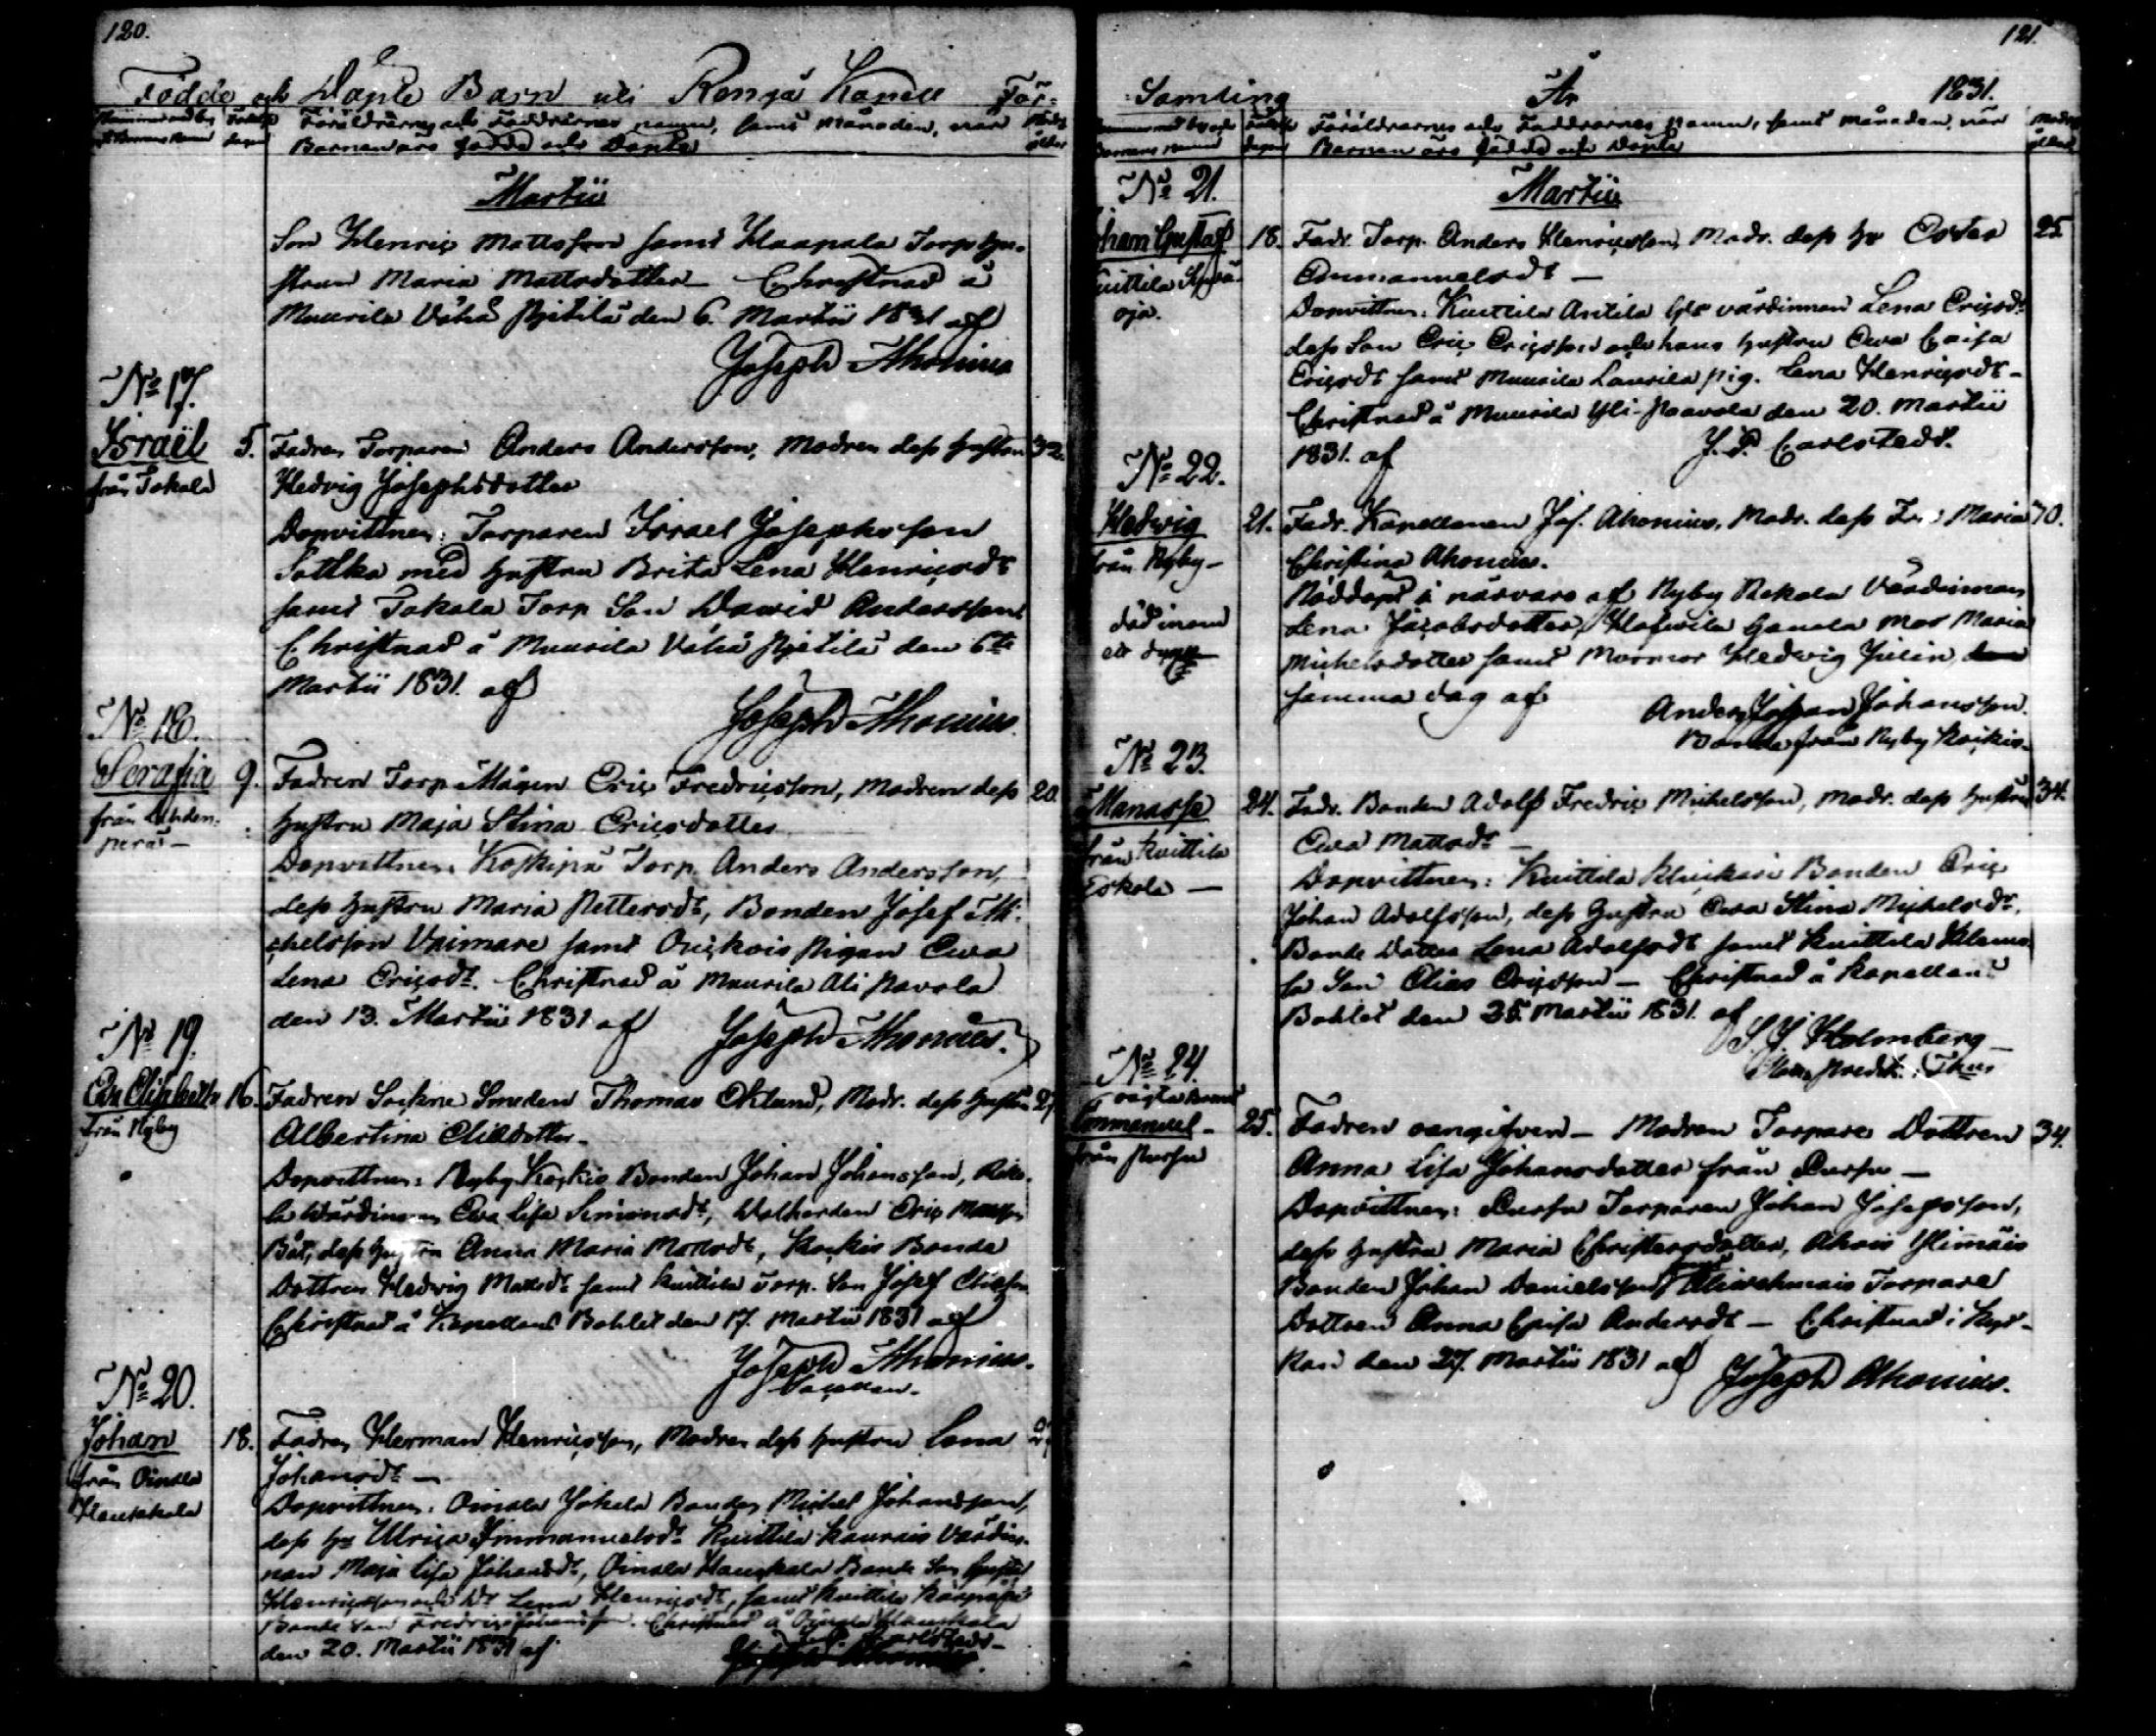 120.
Födde och Döpte Barn uti Rengå Kapell För-
Föräldrarnes och Faddrarnes namn, samt månaden, när
Barnen äro födde och Döpte
Martii
Son Henric Mattsson samt Haapala Torp Hu-
strun Maria Mattsdotter Christnad å
Muurila Vähä Pietilä den 6. Martii 1831 af
Joseph Ahonius
No 17.
Israël
från Tokola
5.
Fadren Torparen Anders Andersson, Modren dess Hustru
32.
Hedvig Josephsdotter
Dopvittnen: Torparen Israel Josephsson
Sottka med Hustru Brita Lena Henricsdr
samt Tokola Torp Son David Andersson
Christnad å Muurila Vähä Pietilä den 6te
Martii 1831. af
Joseph Ahonius.
No 18.
Serafia
från Lehden-
perä
9.
Fadren Torp Mågen Eric Fredricsson, Modren dess
20.
Hustru Maja Stina Ericsdotter
Dopvittnen: Torp. Anders Andersson,
dess Hustru Maria Pettersdr, Bonden Josef Mi-
chelsson Vaimare samt Pigan Ewa
Lena Ericsdr. Christnad å Muurila Ali Pavola
den 13. Martii 1831 af
Joseph Ahonius.
No 19.
Eva Elisabeth
från Nyby
16.
Fadren Sockne Smeden Thomas Oklund, Modr. dess Hustru
27
Albertina Eliædotter
Dopvittnen: Nyby Koikis Bonden Johan Johansson,
la Wärdinnan Eva Lisa Simonsdr, Eric
Båt, dess Hustru Anna Maria Mattsdr, Koikis Bonde
Dottren Hedwig Mattsdr samt Kuittila Torp. Son Josef Eliæson
Christnad å Kapellans Bohlet den 17. Martii 1831 af
Joseph Ahonius.
Capellan.
No 20.
Johan
från Oinala
Haukkala
18.
Fadren Herman Henricsson, Modren dess Hustru Lena
Johansdr
Dopvittnen: Oinala Jokela Bonden Michel Johansson,
dess Hu Ulrica Immanuelsdr Kuittila Kaurais Värdin-
nan Maja Lisa Johansdr, Oinala Haukkala Bonde Son Gustaf
Henricsson och Dr Lena Henricsdr, samt Kuittila
Bonde Son Fredric Johansson. Christnad å Oinala Haukkala
den 20. Martii 1831 af
J. P. Carlstedt
Joseph Ahonius
121.
Samling År 1831.
Föräldrarnes och Faddrarnes Namn, samt månaden, när
Barnen äro födde och Döpte
Martii
No 21.
Johan Gustaf
Kuittila
oja.
18.
Fadr. Torp. Anders Henricsson, Modr. dess Hu Ester
25
Emmanuelsdr
Dopvittnen: Kuittila Antila Gla värdinnan Lena Ericsdr
dess Son Eric Ericsson och hans hustru Ewa Caisa
Ericsdr samt Muurila Laurila pig. Lena Henricsdr
Christnad å Muurila Yli-Paavola den 20. Martii
1831. af
J. P. Carlstedt.
No 22.
Hedwig
från Nyby
död inom
ett dygn
21.
Fadr. Kapellanen Jos. Ahonius, Modr. dess Fru Maria
Christina Ahonius.
Nöddöpt i närvaro af Nyby Rekola Värdinnan
Lena Jacobsdotter, Gamla Mor Maria
Michelsdotter samt Mormor Hedwig Julin,
samma dag af
Anders Johan Johansson.
Bonde från Nyby Koikis.
No 23.
Manasse
från Kuittila
Eskola
24.
Fadr. Bonden Adolf Fredric Michelsson, Modr. dess Hustru
34.
Ewa Mattsdr
Dopvittnen: Kuittila Bonden Eric
Johan Adolfsson, dess Hustru Ewa Stina Michelsdr,
Bonde Dotter Lena Adolfsdr samt Kuittila
la Son Elias Ericsson Christnad å Kapellans
Bohlet den 25. Martii 1831. af
S. J. Holmberg
No 24.
oägta Barnet
Emmanuel
från Pursu
25.
Fadren oangifven Modren Torpare Dottren
34.
Anna Lisa Johansdotter från Pursu
Dopvittnen: Pursu Torparen Johan Josefsson,
dess Hustru Maria Christersdotter, Ahois Ylimäis
Bonden Johan Danielsson, Torpare
Dottren Anna Caisa Andersdr Christnad i Kyr-
kan den 27. Martii 1831 af
Joseph Ahonius.